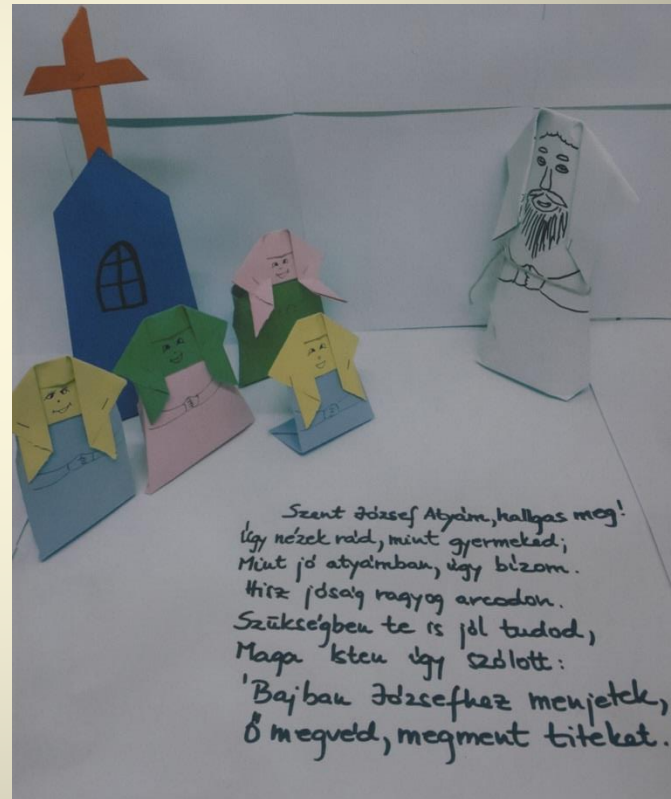 Szent József Atyám, hallgas meg!
Úgy nézek rád, mint gyermeked;
Mint jó atyámban, úgy bízom.
Hisz jóság ragyog arcodon.
Szükségben te is jól tudod,
Maga Isten úgy szólott:
'Bajban Józsefhez menjetek,
Ő megvéd, megment titeket.